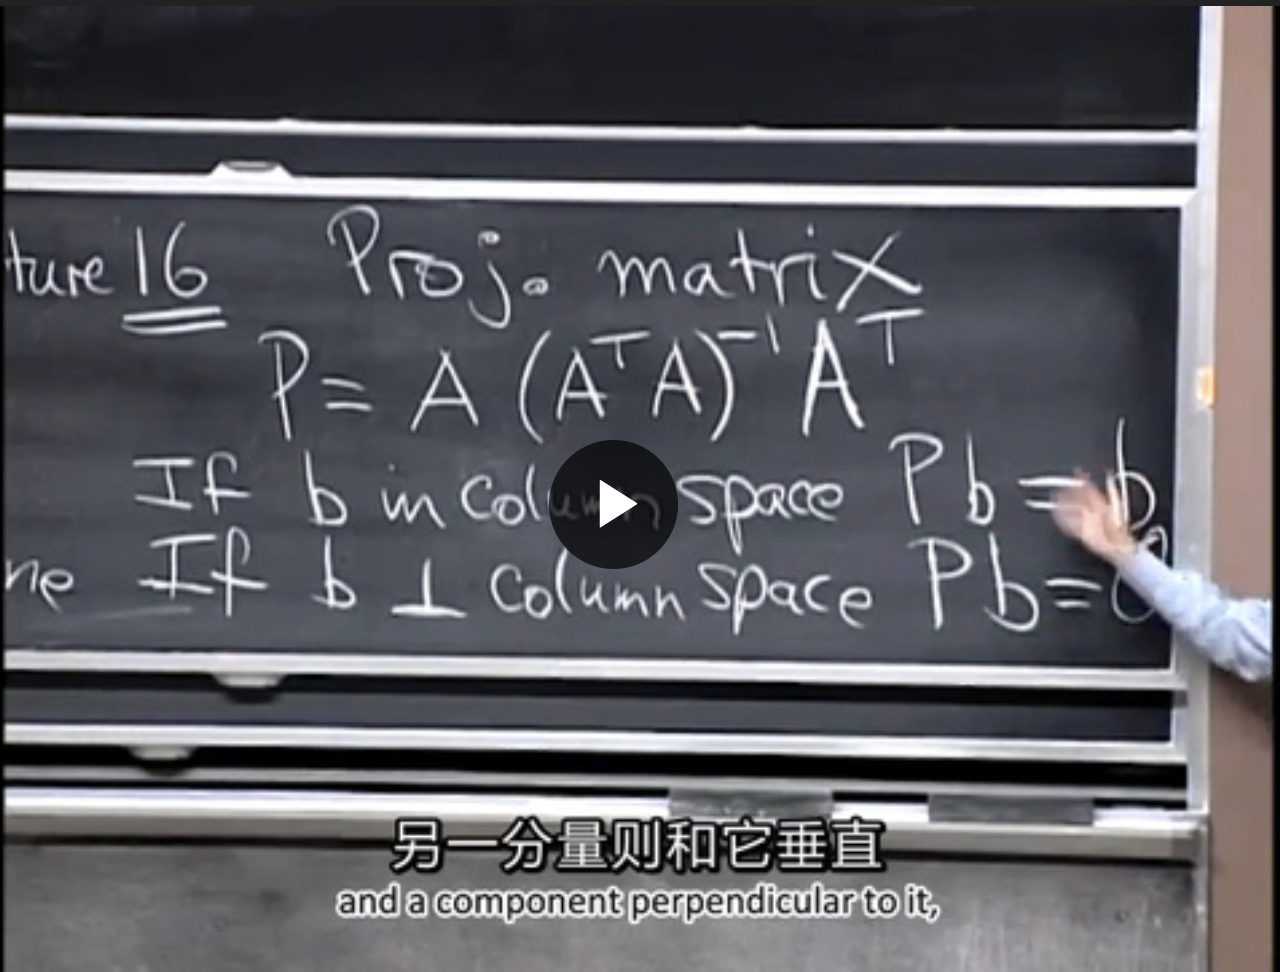 ture 16 Proj. matrix
P = A (AᵀA)⁻¹ Aᵀ
If b in column space Pb = b
ne If b ⊥ column space Pb = 0
另一分量则和它垂直
and a component perpendicular to it,